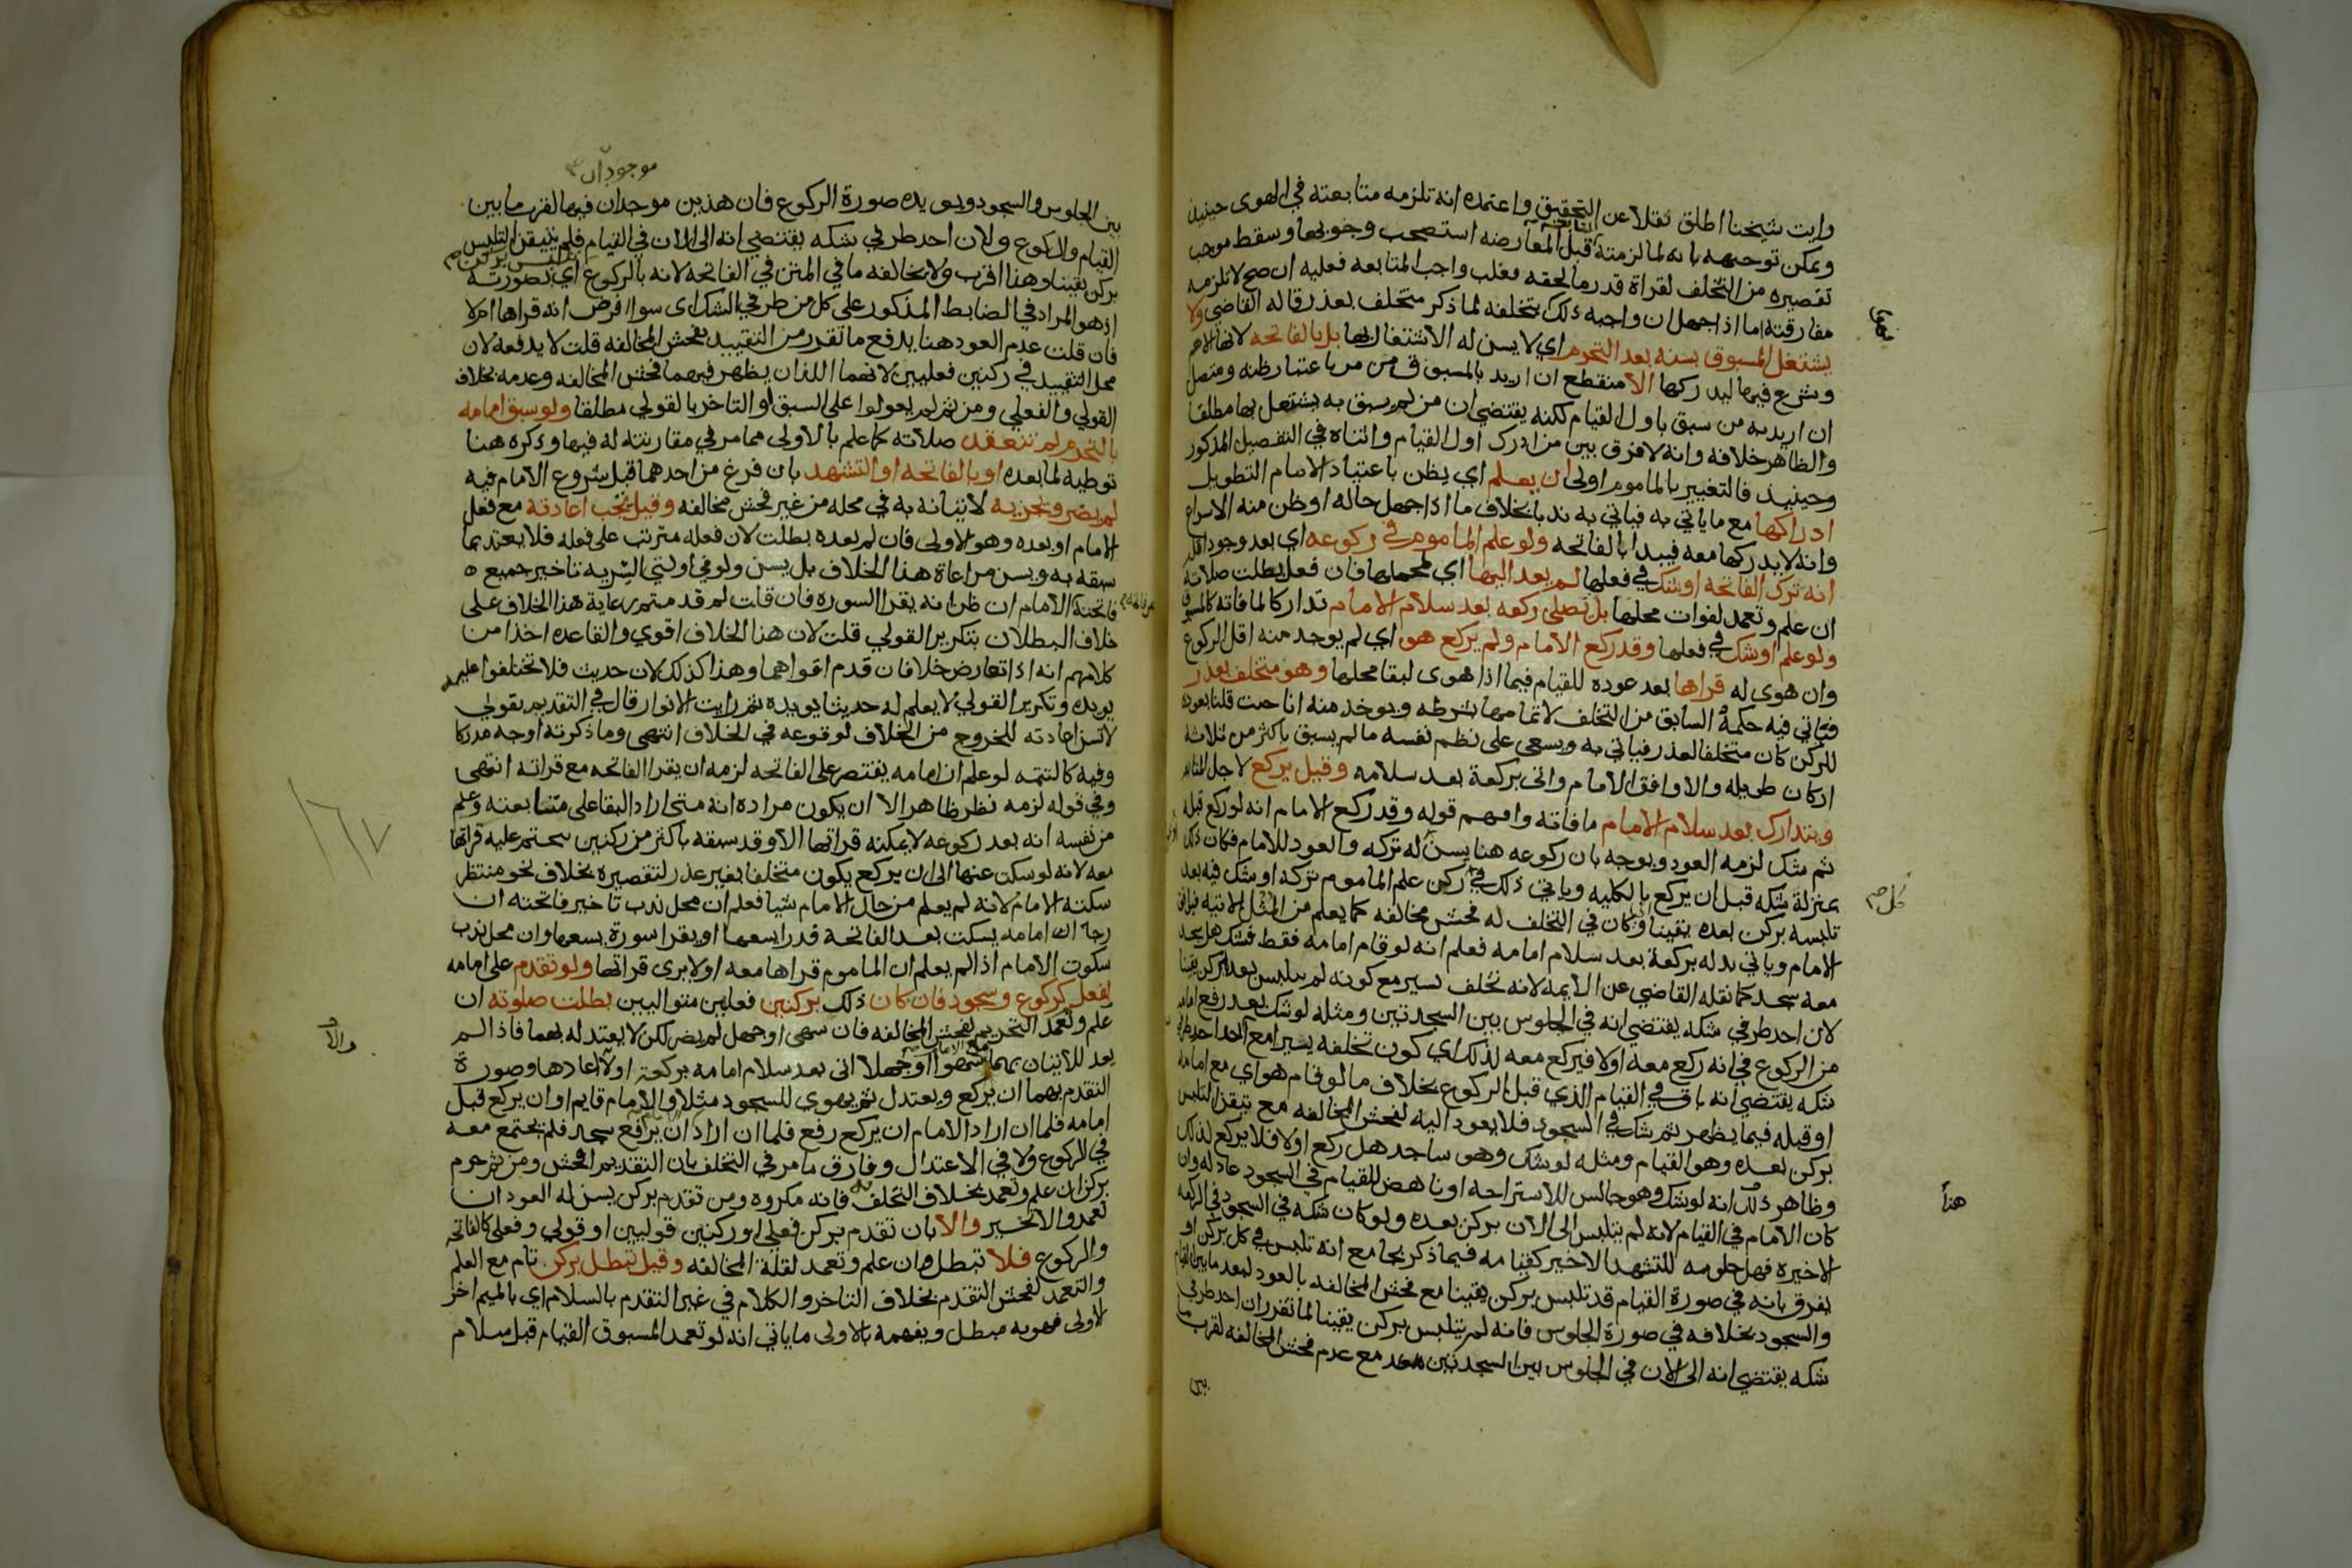 وايت شيخنا اطلق نقلا عن التحقيق واعتمده انه تلزمه متابعته في الهوى حينيذ
ويمكن توجيهه بانه لما لزمته قبل المعارضه استصحب وجوبها وسقط موجب
تقصيره من التخلف لقراة قدر ما لحقه فغلب واجب المتابعه فعليه ان صح لا تلزمه
مفارقته اما اذا جهل ان واجبه ذلك تخلفه لما ذكر متخلف بعذر قاله القاضي ولا
يشتغل المسبوق بسنه بعد التحرم اي لا يسن له الاشتغال بها بل بالفاتحه لانها الاهم
ويشرع فيها ليدركها الا منقطع ان اريد بالمسبوق من مر باعتبار ظنه ومتصل
ان اريد به من سبق باول القيام لكنه يقتضي ان من لم يسبق به يشتغل بها مطلقا
والظاهر خلافه وانه لا فرق بين من ادرك اول القيام واثناه في التفصيل المذكور
وحينيذ فالتعبير بالماموم اولى ان يعلم اي يظن باعتياد الامام التطويل
ادراكها مع ما ياتي به فياتي به ندبا بخلاف ما اذا جهل حاله او ظن منه الاسراع
وانه لا يدركها معه فيبدا بالفاتحه ولو علم الماموم في ركوعه اي بعد وجود اقله
انه ترك الفاتحه او شك في فعلها لم يعد اليها اي لمحلها فان فعل بطلت صلاته
ان علم وتعمد لفوات محلها بل يصلي ركعه بعد سلام الامام تداركا لما فاته كالمسبوق
ولو علم او شك في فعلها وقد ركع الامام ولم يركع هو اي لم يوجد منه اقل الركوع
وان هوى له قراها بعد عوده للقيام فيما اذا هوى لبقا محلها وهو متخلف بعذر
فياتي فيه حكمه السابق من التخلف لاتمامها بشرطه ويوخذ منه انا حيث قلنا بعوده
للركن كان متخلفا لعذر فياتي به ويسعى على نظم نفسه ما لم يسبق باكثر من ثلاثه
اركان طويله والا وافق الامام واتى بركعة بعد سلامه وقيل يركع لاجل المتابعه
ويتدارك بعد سلام الامام ما فاته وافهم قوله وقد ركع الامام انه لو ركع قبله
ثم شك لزمه العود ويوجه بان ركوعه هنا يسن له تركه والعود للامام فكان ذلك
بمنزلة شكه قبل ان يركع بالكليه وياتي ذلك في ركن علم الماموم تركه او شك فيه بعد
تلبسه بركن بعده يقينا وكان في التخلف له فحش مخالفه كما يعلم من المثل الاتيه فيوافق
الامام وياتي بدله بركعة بعد سلام امامه فعلم انه لو قام امامه فقط فشك هل سجد
معه سجد كما نقله القاضي عن الايمه لانه تخلف يسير مع كونه لم يتلبس بعده بركن يقينا
لان احد طرفي شكه يقتضي انه في الجلوس بين السجدتين ومثله لو شك بعد رفع امامه
من الركوع في انه ركع معه او لا فيركع معه لذلك اي كون تخلفه يسيرا مع ان احد طرفي
شكه يقتضي انه باق في القيام الذي قبل الركوع بخلاف ما لو قام هو اي مع امامه
او قبله فيما يظهر ثم شك في السجود فلا يعود اليه لفحش المخالفه مع تيقن التلبس
بركن بعده وهو القيام ومثله لو شك وهو ساجد هل ركع اولا فلا يركع لذلك
وظاهر ذلك انه لو شك وهو جالس للاستراحه او ناهض للقيام في السجود عاد له وان
كان الامام في القيام لانه لم يتلبس الى الان بركن بعده ولو كان شكه في السجود في الركعه
الاخيره فهل جلوسه للتشهد الاخير كقيامه فيما ذكر بجامع انه تلبس في كل بركن او
يفرق بانه في صورة القيام قد تلبس بركن يقينا مع فحش المخالفه بالعود لبعد ما بين القيام
والسجود بخلافه في صورة الجلوس فانه لم يتلبس بركن يقينا لما تقرر ان احد طرفي
شكه يقتضي انه الى الان في الجلوس بين السجدتين مع عدم فحش المخالفه لقرب ما
بين
كل صح
هنا
موجودان صح
بين الجلوس والسجود ويويده صورة الركوع فان هذين موجدان فيها لقرب ما بين
القيام والركوع ولان احد طرفي شكه يقتضي انه الى الان في القيام فلم يتيقن التلبس
بركن يقينا وهذا اقرب ولا يخالفه ما في المتن في الفاتحه لانه بالركوع اي بصورته
اذ هو المراد في الضابط المذكور على كل من طرفي الشك اي سوا افرض انه قراها ام لا
فان قلت عدم العود هنا يدفع ما تقرر من التقييد بفحش المخالفه قلت لا يدفعه لان
محل التقييد في ركنين فعليين لانهما اللذان يظهر فيهما فحش المخالفه وعدمه بخلاف
القولي والفعلي ومن ثم لم يعولوا على السبق او التاخر بالقولي مطلقا ولو سبق امامه
بالتحرم لم تنعقد صلاته كما علم بالاولى مما مر في مقارنته له فيها وذكره هنا
توطيه لما بعده او بالفاتحه او التشهد بان فرغ من احدهما قبل شروع الامام فيه
لم يضر وتجزيه لاتيانه به في محله من غير فحش مخالفه وقيل تجب اعادته مع فعل
الامام او بعده وهو الاولى فان لم يعده بطلت لان فعله مترتب على فعله فلا يعتد بما
سبقه به ويسن مراعاة هذا الخلاف بل يسن ولو في اولتي السريه تاخير جميع
فاتحته الامام ان ظن انه يقرا السوره فان قلت لم قدمتم رعاية هذا الخلاف على
خلاف البطلان بتكرير القولي قلت لان هذا الخلاف اقوي والقاعده اخذا من
كلامهم انه اذا تعارض خلافان قدم اقواهما وهذا كذلك لان حديث فلا تختلفوا عليه
يويده وتكرير القولي لا يعلم له حديثا يويده ثم رايت الانوار قال في التقديم بقولي
لا تسن اعادته للخروج من الخلاف لوقوعه في الخلاف انتهى وما ذكرته اوجه مدركا
وفيه كالتتمه لو علم ان امامه يقتصر على الفاتحه لزمه ان يقرا الفاتحه مع قراته انتهى
وفي قوله لزمه نظر ظاهر الا ان يكون مراده انه متى اراد البقا على متابعته وعلم
من نفسه انه بعد ركوعه لا يمكنه قراتها الا وقد سبقه باكثر من ركنين يتحتم عليه قراتها
معه لانه لو سكت عنها الى ان يركع يكون متخلفا بغير عذر لتقصيره بخلاف نحو منتظر
سكتة الامام لانه لم يعلم من حال الامام شيا فعلم ان محل ندب تاخير فاتحته ان
رجا ان امامه يسكت بعد الفاتحة قدرا يسعها او يقرا سورة يسعها وان محل ندب
سكوت الامام اذا لم يعلم ان الماموم قراها معه او لا يرى قراتها ولو تقدم على امامه
بفعل كركوع وسجود فان كان ذلك بركنين فعليين متواليين بطلت صلوته ان
علم وتعمد التحريم لفحش المخالفه فان سهى او جهل لم يضر لكن لا يعتد له بهما فاذا لم
يعد للاتيان بهما سهوا او جهلا اتى بعد سلام امامه بركعة والا اعادها وصورة
التقدم بهما ان يركع ويعتدل ثم يهوي للسجود مثلا والامام قايم او ان يركع قبل
امامه فلما ان اراد الامام ان يركع رفع فلما ان اراد ان يرفع سجد فلم يجتمع معه
في الركوع ولا في الاعتدال وفارق ما مر في التخلف بان التقديم افحش ومن ثم حرم
بركن ان علم وتعمد بخلاف التخلف به فانه مكروه ومن تقدم بركن يسن له العود ان
تعمد والا تخير والا بان تقدم بركن فعلي او ركنين قوليين او قولي وفعلي كالفاتحه
والركوع فلا تبطل وان علم وتعمد لقلة المخالفه وقيل تبطل بركن تام مع العلم
والتعمد لفحش التقدم بخلاف التاخر والكلام في غير التقدم بالسلام اي بالميم اخر
الاولى فهو به مبطل ويفهمه بالاولى ما ياتي انه لو تعمد المسبوق القيام قبل سلام
١٦٧
والا